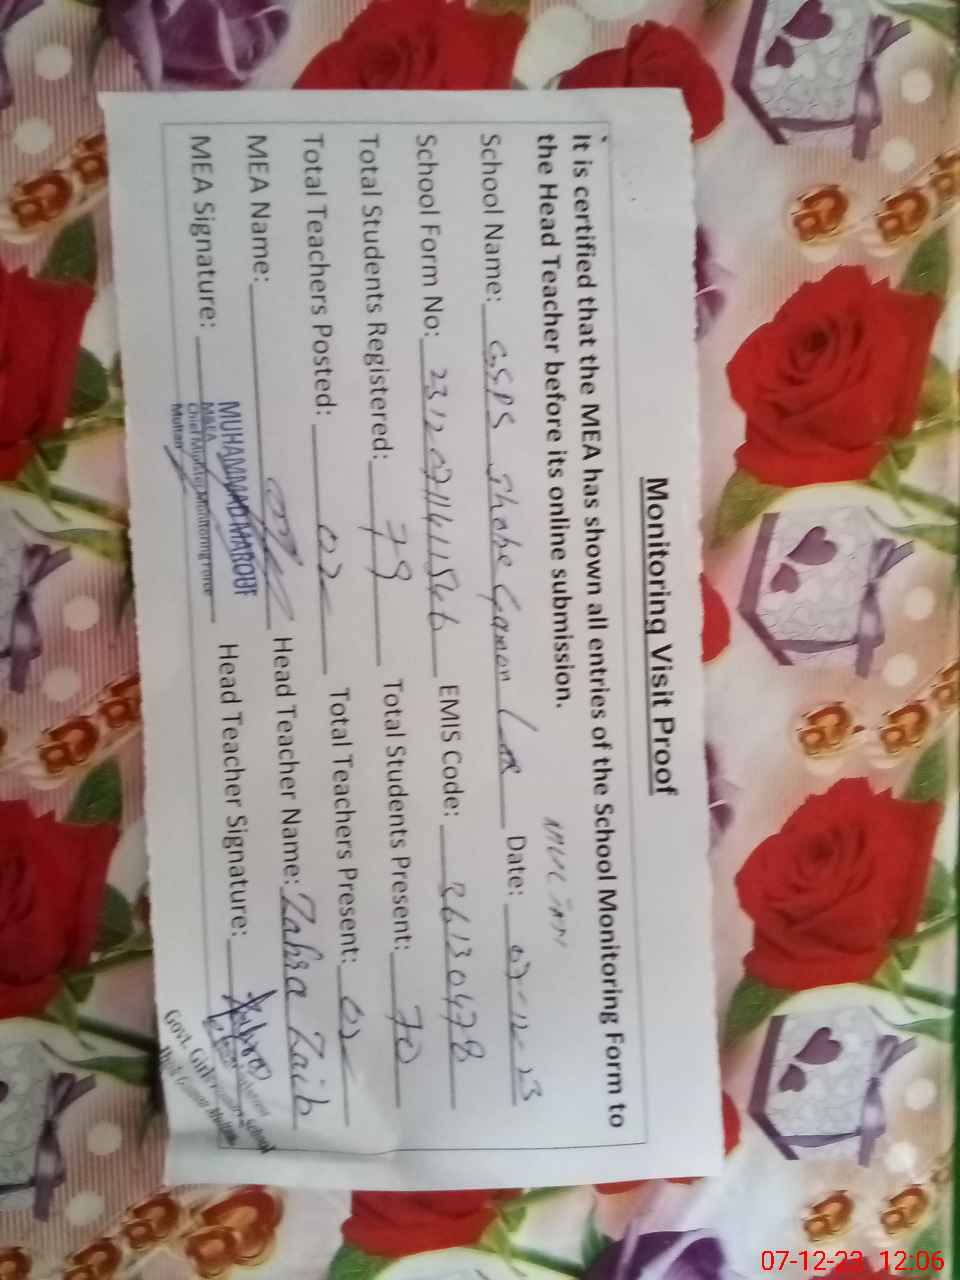 Monitoring Visit Proof
It is certified that the MEA has shown all entries of the School Monitoring Form to
the Head Teacher before its online submission.
School Name: Date: 07-12-23
School Form No: EMIS Code: 36130478
Total Students Registered: 79 Total Students Present: 70
Total Teachers Posted: 02 Total Teachers Present: 02
MEA Name: Head Teacher Name: Zahra Zaib
MUHAMMAD MAROUF
MEA Signature: Head Teacher Signature:
M&EA
Chief Minister Monitoring Force
Multan
Govt. Girls School
07-12-23 12:06